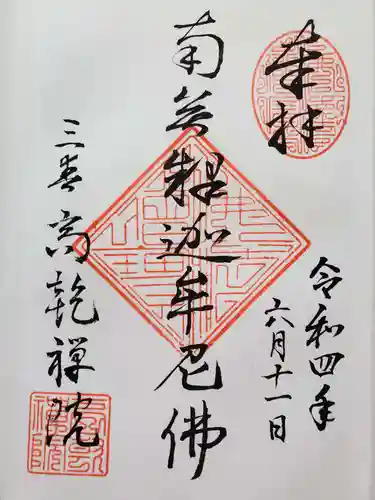 奉拝
令和四年
六月十一日
南無釋迦牟尼佛
三春高乾禅院